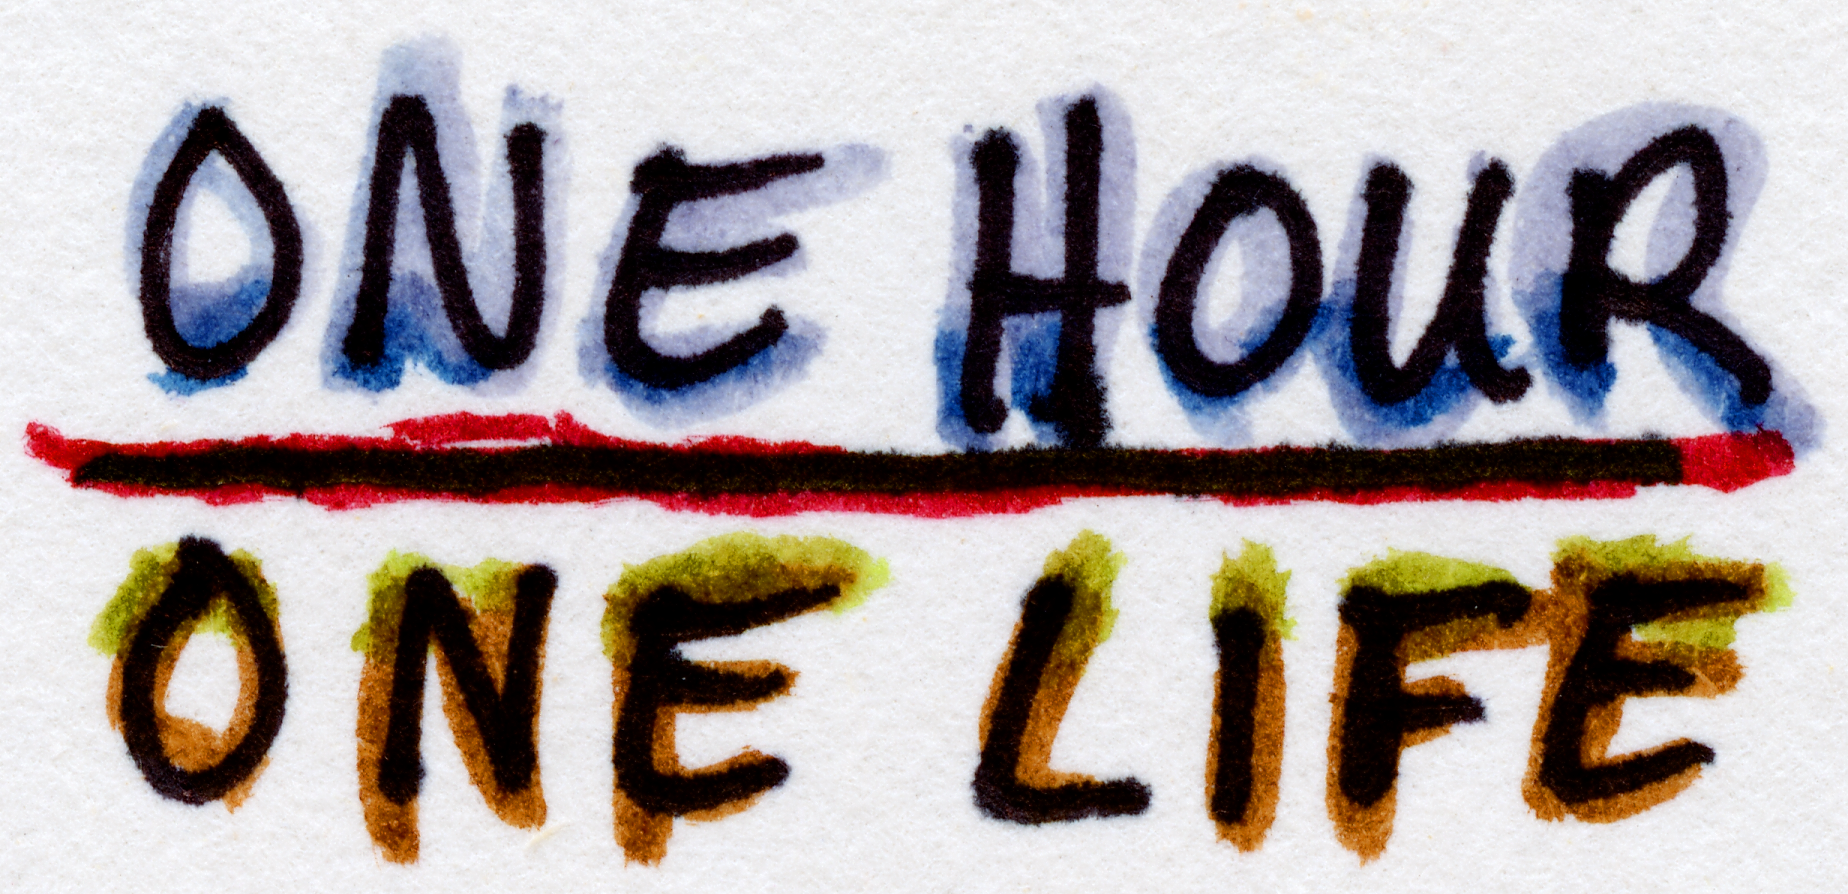 ONE HOUR
ONE LIFE